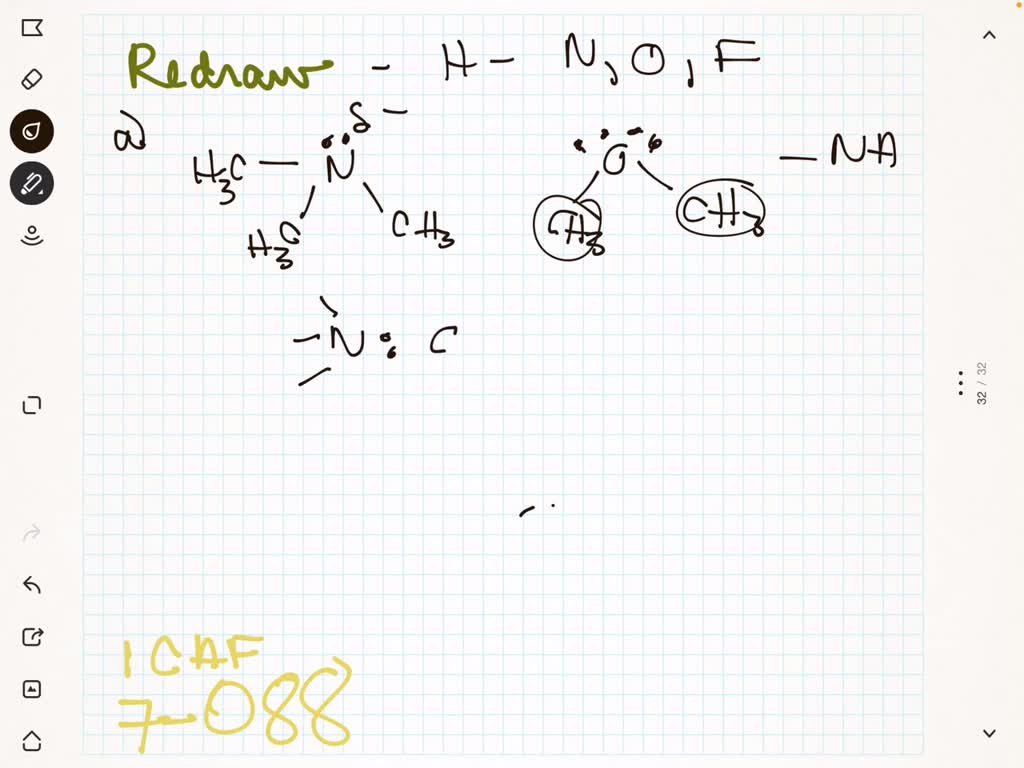 Redraw - H - N, O, F
a) δ -
H3C — N CH3 H3C
O CH3 CH3 — NA
N : C
32 / 32
1CAF
7-088